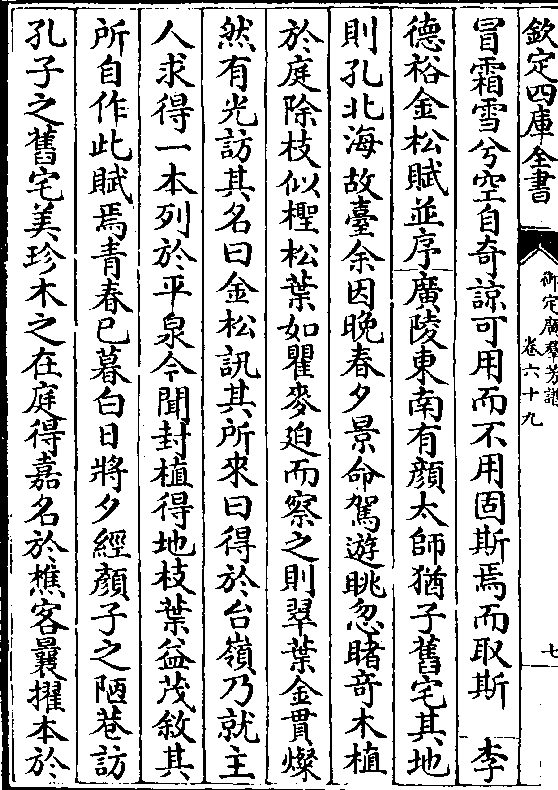 欽定四庫全書
御定廣羣芳譜
卷六十九
七
冒霜雪兮空自奇諒可用而不用固斯焉而取斯　李
德裕金松賦並序廣陵東南有顔太師猶子舊宅其地
則孔北海故臺余因晚春夕景命駕遊眺忽睹竒木植
於庭除枝似檉松葉如瞿麥迫而察之則翠葉金貫燦
然有光訪其名曰金松訊其所來曰得於台嶺乃就主
人求得一本列於平泉今聞封植得地枝葉益茂敘其
所自作此賦焉青春已暮白日將夕經顔子之陋巷訪
孔子之舊宅美珍木之在庭得嘉名於樵客曩擢本於